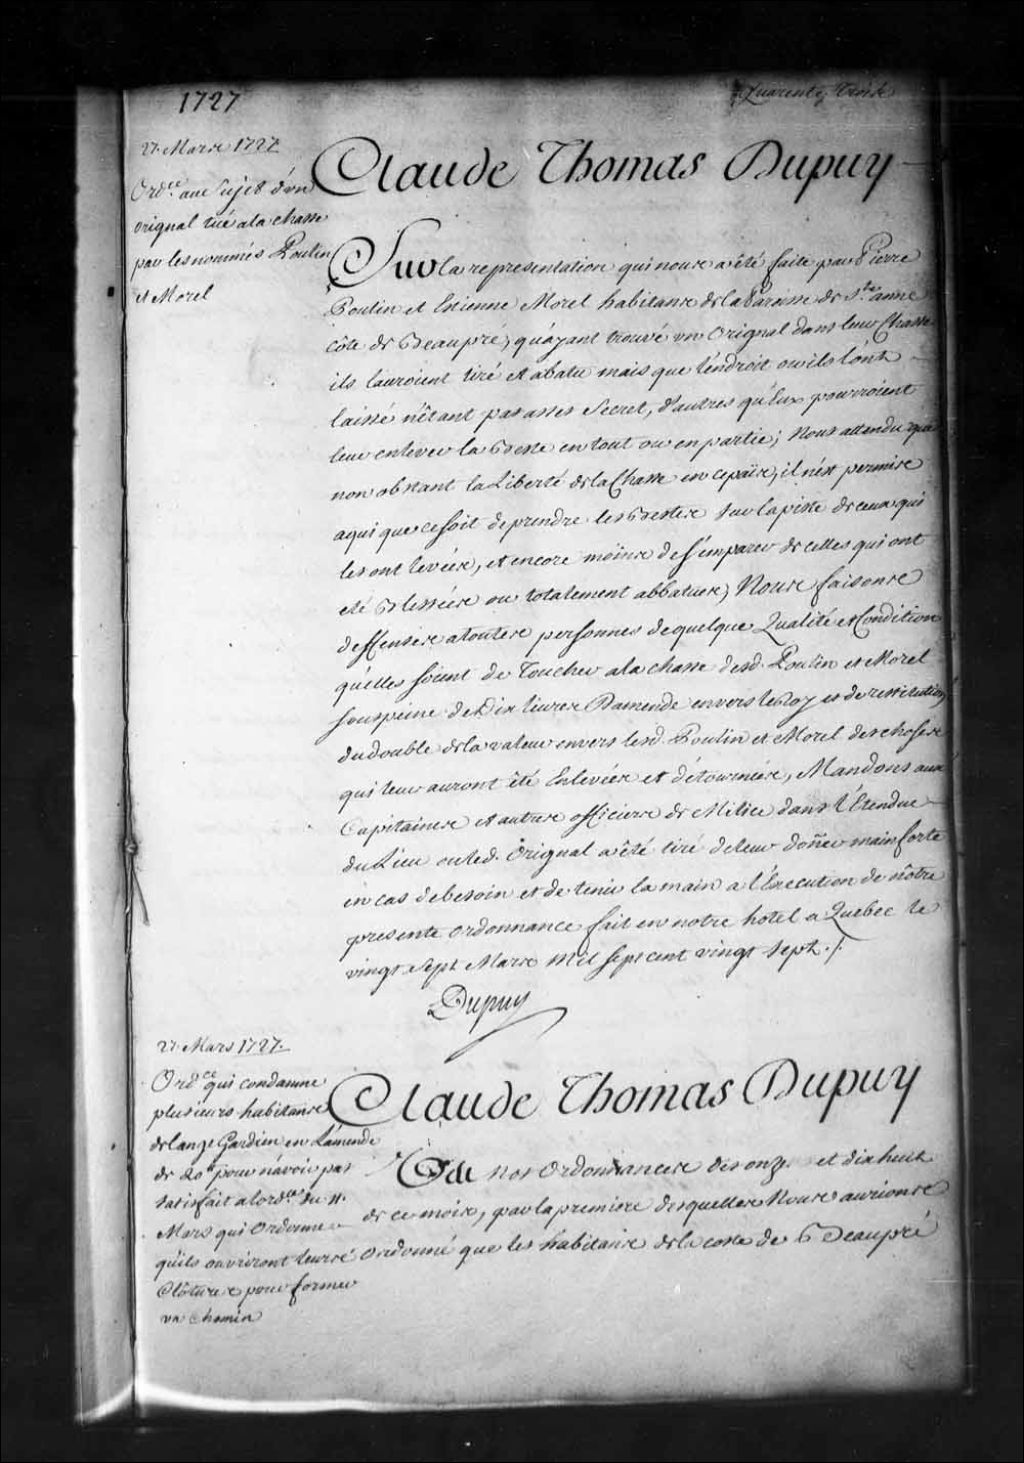 1727
Quarente, Trois
27. Mars 1727
Ord.ce au Sujet d'un
orignal tué ala chasse
par les nommés Poulin
et Morel
Claude Thomas Dupuy
Sur la representation qui nous a été faite par Pierre
Poulin et Estienne Morel habitans de la Paroisse de Ste anne
côte de Beaupré, qu'ayant trouvé un Orignal dans leur Chasse
ils l'auroient tiré et abatu mais que l'endroit ou ils l'ont
laissé n'êtant pas asses Secret, d'autres qu'Eux pourroient
leur enlever la Beste en tout ou en partie; Nous attendu que
non obstant la Liberté de la Chasse en ce païs, il n'est permis
a qui que ce soit de prendre les Bestes sur la piste de ceux qui
les ont levées, et encore moins de s'emparer de celles qui ont
été Blessées ou totalement abbatues, Nous faisons
deffenses a toutes personnes de quelque Qualité et Condition
qu'elles soient de Toucher ala chasse desd. Poulin et Morel
sous peine de Dix livres Damende envers le Roy et de restitution
du double de la valeur envers lesd. Poulin et Morel des choses
qui leur auront été Enlevées et détournées, Mandons aux
Capitaines et autres officiers de Milice dans l'Etendue
du Lieu ou led. Orignal a été tiré de leur doñer main forte
en cas de besoin et de tenir la main a l'Execution de nôtre
presente ordonnance fait en notre hotel a Quebec le
vingt Sept Mars mil sept cent vingt sept ./.
Dupuy
27. Mars 1727.
Ord.ce qui condamne
plusieurs habitans
de lange Gardien en L'amende
de 20# pour n'avoir pas
satisfait a lord.ce du 11.
Mars qui Ordonne
qu'ils ouvriront leurs
Clôtures pour former
un chemin
Claude Thomas Dupuy
Vû Nos Ordonnances des onze et dix huit
de ce mois, par la premiere desquelles Nous aurions
Ordonné que les habitans de la coste de Beaupré